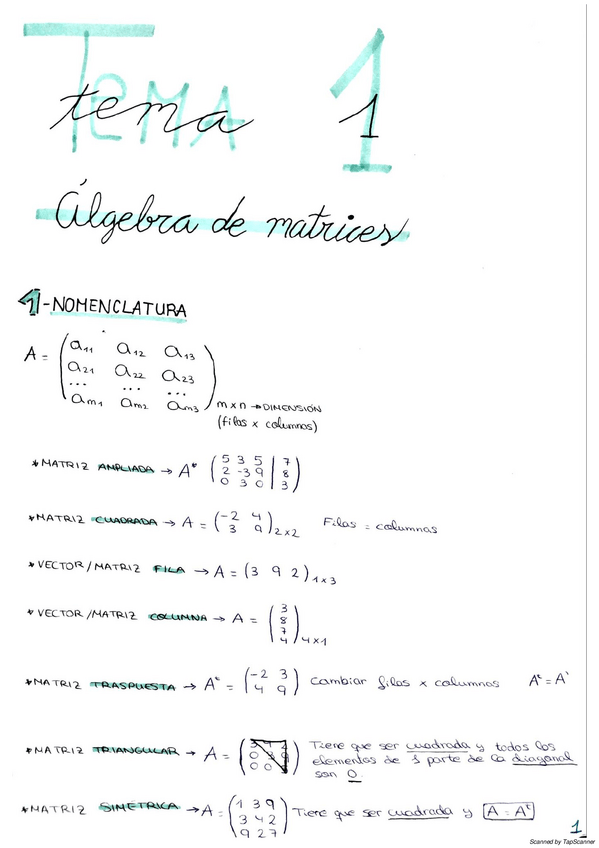 TEMA 1
tema 1
Álgebra de matrices
1-NOMENCLATURA
A = ( a11 a12 a13
a21 a22 a23
... ... ...
am1 am2 am3 ) m x n → DIMENSIÓN
(filas x columnas)
*MATRIZ AMPLIADA → A* ( 5 3 5 | 7
2 -3 9 | 8
0 3 0 | 3 )
*MATRIZ CUADRADA → A = ( -2 4
3 9 ) 2x2 Filas = columnas
*VECTOR/MATRIZ FILA → A = (3 9 2) 1x3
*VECTOR/MATRIZ COLUMNA → A = ( 3
8
7
4 ) 4x1
*MATRIZ TRASPUESTA → At = ( -2 3
4 9 ) Cambiar filas x columnas At = A'
*MATRIZ TRIANGULAR → A = ( 0
0 0 ) Tiene que ser cuadrada y todos los
elementos de 1 parte de la diagonal
son 0.
*MATRIZ SIMÉTRICA → A = ( 1 3 9
3 4 2
9 2 7 ) Tiene que ser cuadrada y A = At
1
Scanned by TapScanner